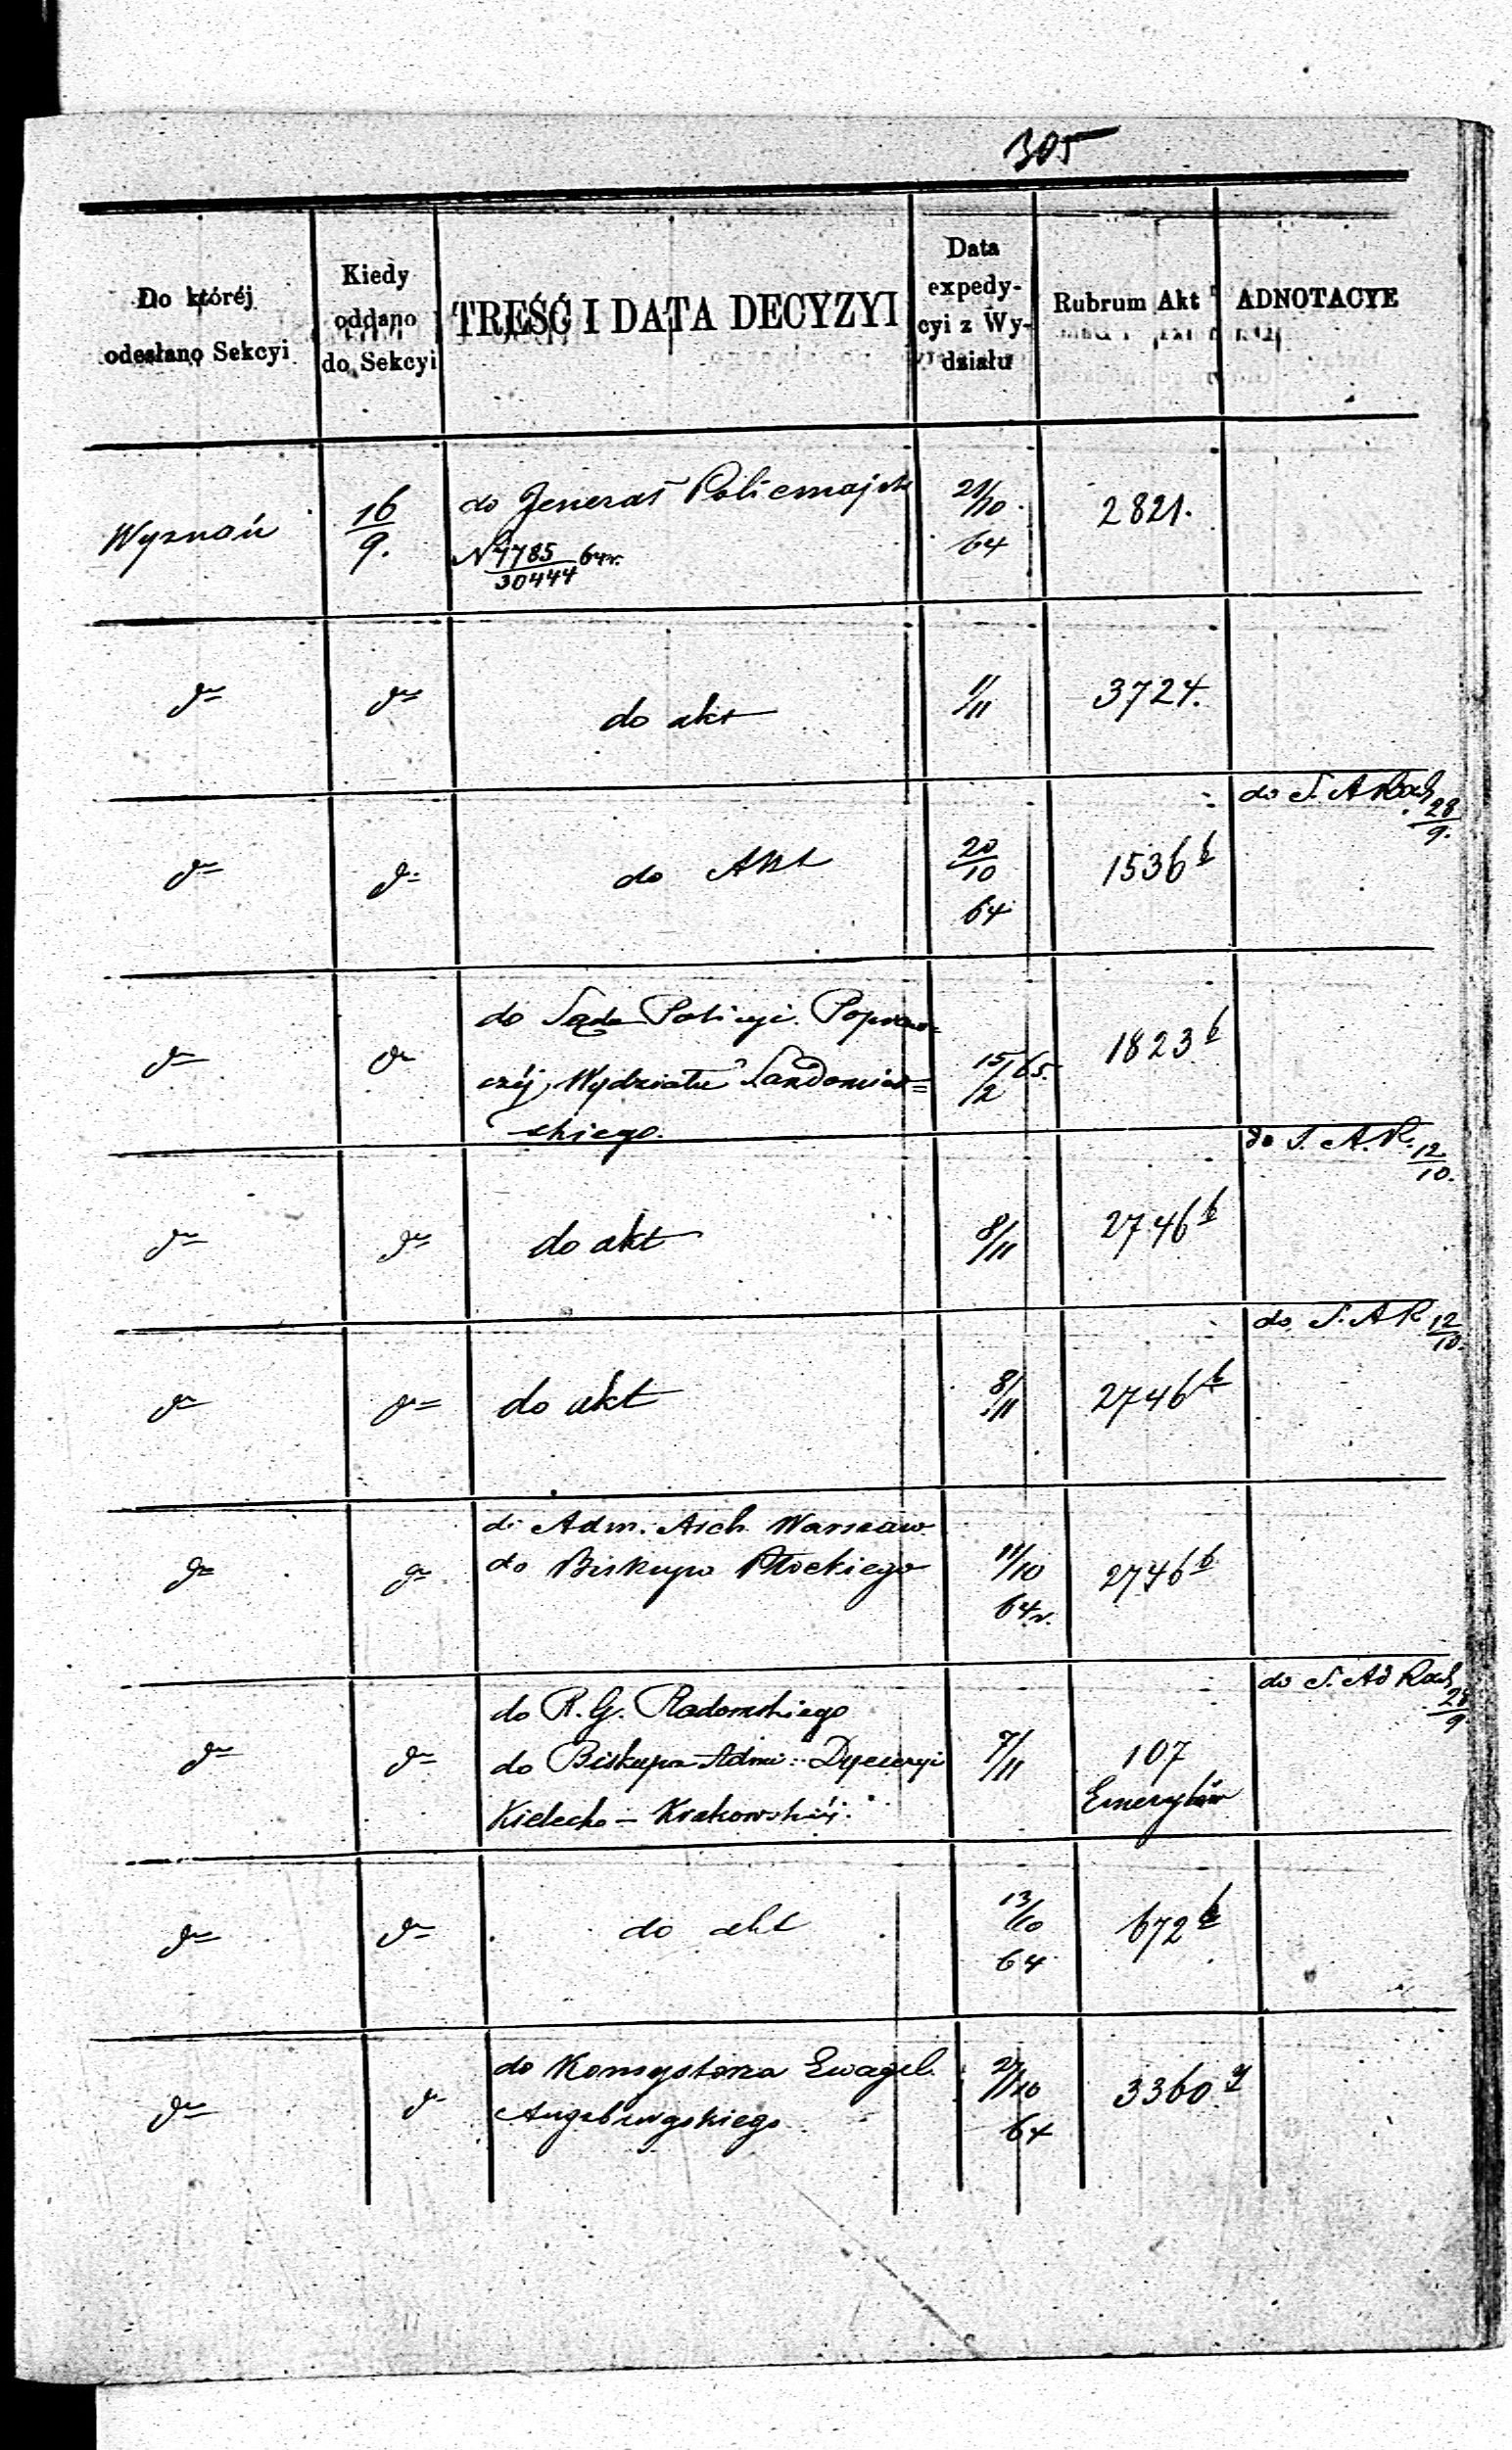 305
Do któréj
odesłano Sekcyi
Kiedy
oddano
do Sekcyi
TREŚĆ I DATA DECYZYI
Data
expedy-
cyi z Wy-
działu
Rubrum Akt
ADNOTACYE
Wyznań
16/9.
do Jenerał Policmajst
N 7785/30444 64r.
21/10
64
2821.
do
do
do akt
1/11
3724.
do
do
do Akt
20/10
64
1536 b
do S. A Rach 28/9.
do
do
do Sądu Policyi Popraw=
czéj Wydziału Sandomier=
skiego.
15/2 65.
1823 b
do
do
do akt
8/11
2746 b
do S. A. R. 12/10.
do
do
do akt
8/11
2746 b
do S. A R 12/10.
do
do
do Adm. Arch. Warszaw.
do Biskupa Płockiego
11/10
64 r.
2746 b
do
do
do R. G. Radomskiego
do Biskupa Admi: Dyecezyi
Kielecko – Krakowskiéj.
7/11
107
Emerytów
do S. Ad Rach 28/9
do
do
do akt
13/10
64
672 b
do
do
do Konsystorza Ewagel.
Augsburgskiego
27/10
64
3360